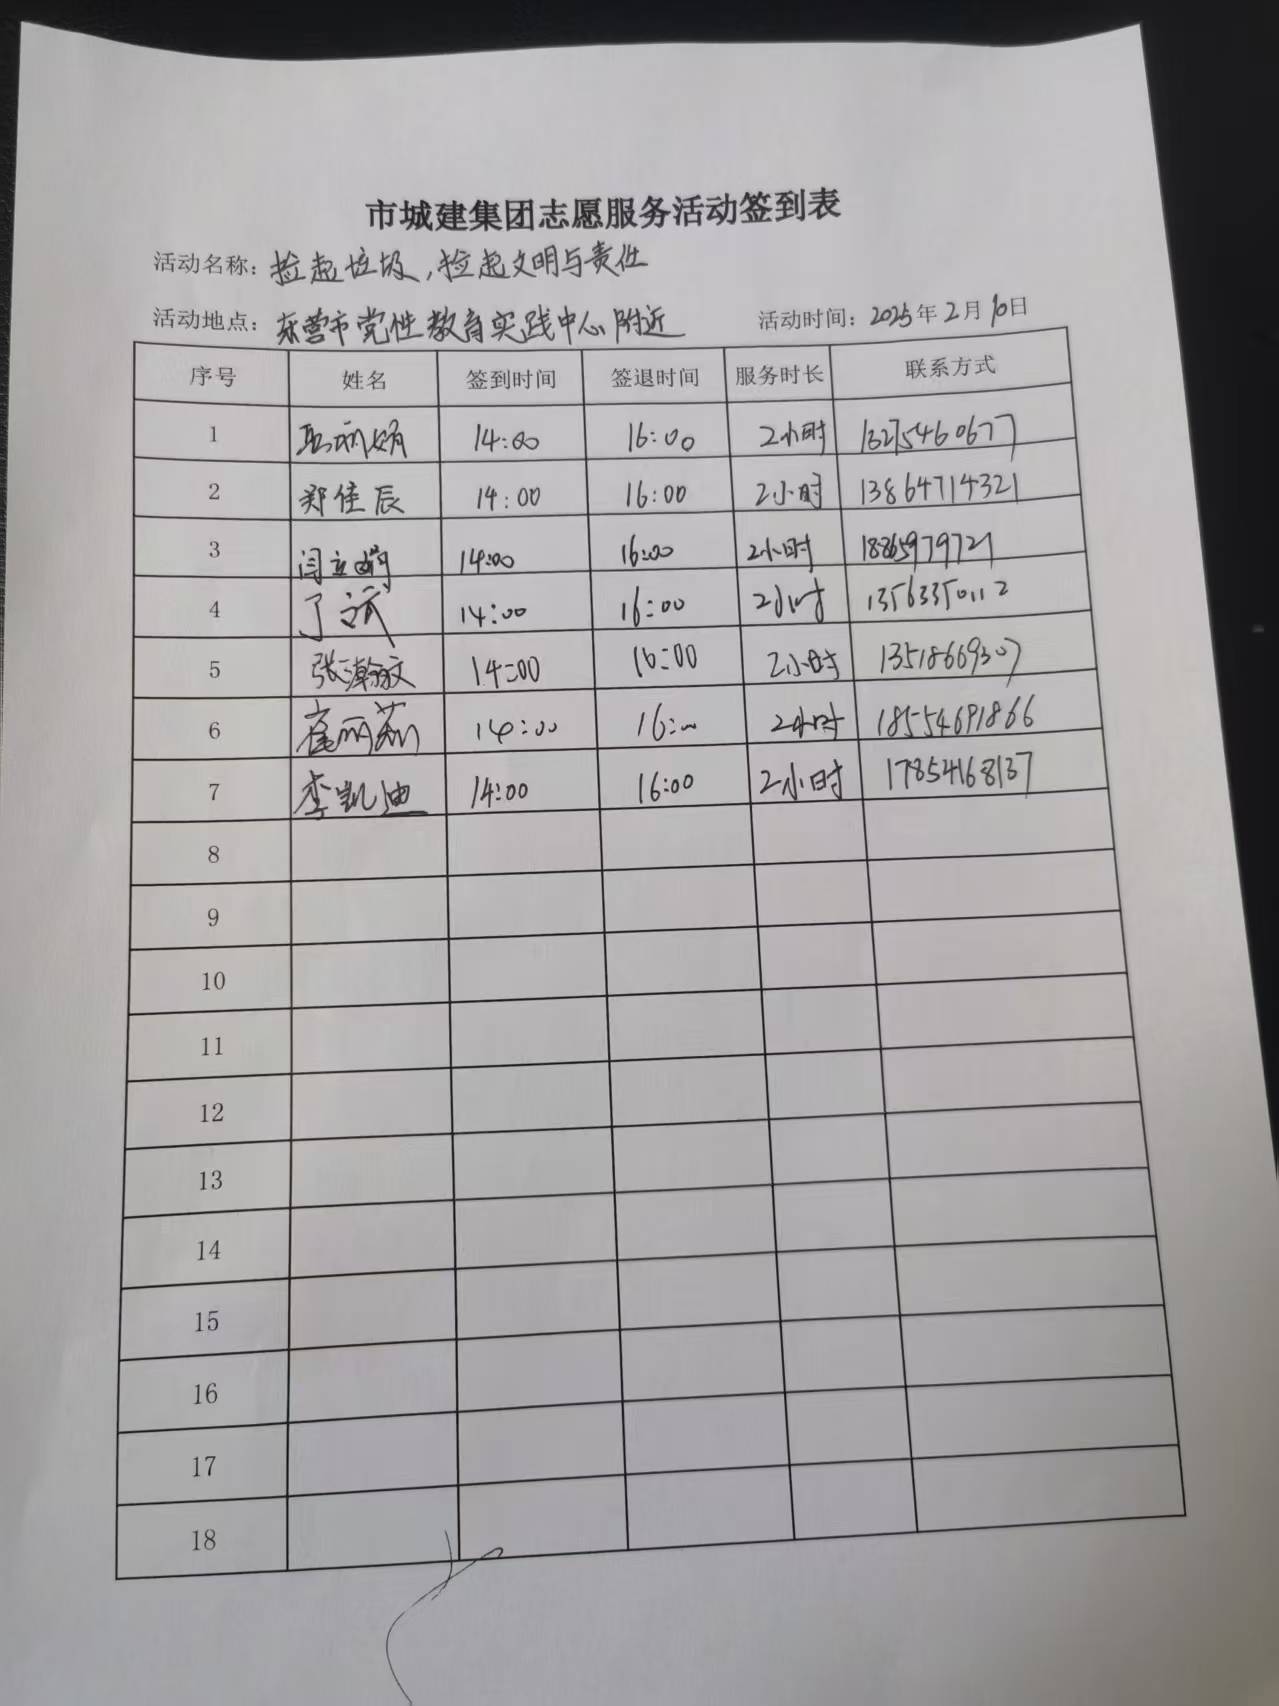 市城建集团志愿服务活动签到表
活动名称：捡起垃圾，捡起文明与责任
活动地点：东营市党性教育实践中心附近 活动时间：2025年2月10日
序号 姓名 签到时间 签退时间 服务时长 联系方式
1 14:00 16:00 2小时 13275460677
2 郑佳辰 14:00 16:00 2小时 13864714321
3 14:00 16:00 2小时 18865979721
4 丁斌 14:00 16:00 2小时 13563350112
5 张瀚文 14:00 16:00 2小时 13518669307
6 崔丽荔 14:00 16:00 2小时 18554691866
7 李凯迪 14:00 16:00 2小时 17854168137
8
9
10
11
12
13
14
15
16
17
18